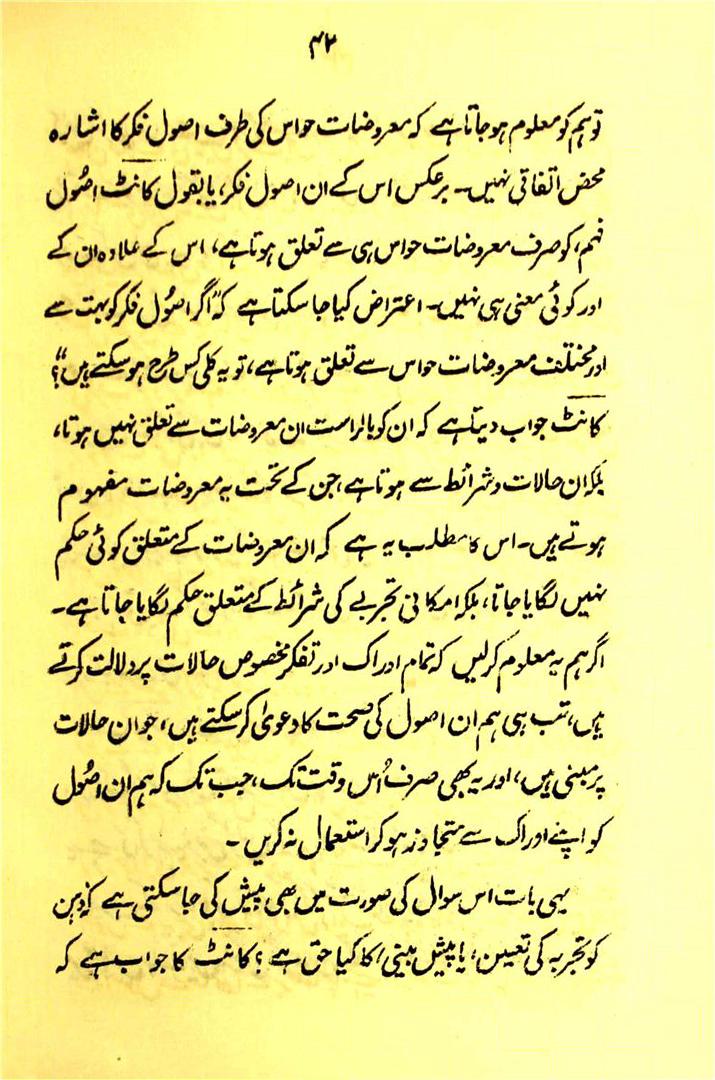 ۴۲
تو ہم کو معلوم ہو جاتا ہے کہ معروضات حواس کی طرف اصول فکر کا اشارہ
محض اتفاقی نہیں۔ برعکس اس کے ان اصول فکر، یا بقول کانٹ اصُول
فہم، کو صرف معروضات حواس ہی سے تعلق ہوتا ہے، اس کے علاوہ ان کے
اور کوئی معنی ہی نہیں۔ اعتراض کیا جا سکتا ہے کہ "اگر اصُول فکر کو بہت سے
اور مختلف معروضات حواس سے تعلق ہوتا ہے، تو یہ کلی کس طرح ہو سکتے ہیں"؟
کانٹ جواب دیتا ہے کہ ان کو بالراست ان معروضات سے تعلق نہیں ہوتا،
بلکہ ان حالات و شرائط سے ہوتا ہے، جن کے تحت یہ معروضات مفہوم
ہوتے ہیں۔ اس کا مطلب یہ ہے کہ ان معروضات کے متعلق کوئی حکم
نہیں لگایا جاتا، بلکہ امکانی تجربے کی شرائط کے متعلق حکم لگایا جاتا ہے۔
اگر ہم یہ معلوم کرلیں کہ تمام ادراک اور تفکر مخصوص حالات پر دلالت کرتے
ہیں، تب ہی ہم ان اصول کی صحت کا دعویٰ کر سکتے ہیں، جو ان حالات
پر مبنی ہیں، اور یہ بھی صرف اُس وقت تک، جب تک کہ ہم ان اصُول
کو اپنے ادراک سے متجاوز ہو کر استعمال نہ کریں۔
یہی بات اس سوال کی صورت میں بھی پیش کی جا سکتی ہے کہ ذہن
کو تجربہ کی تعیین، یا پیش بینی، کا کیا حق ہے؟ کانٹ کا جواب ہے کہ